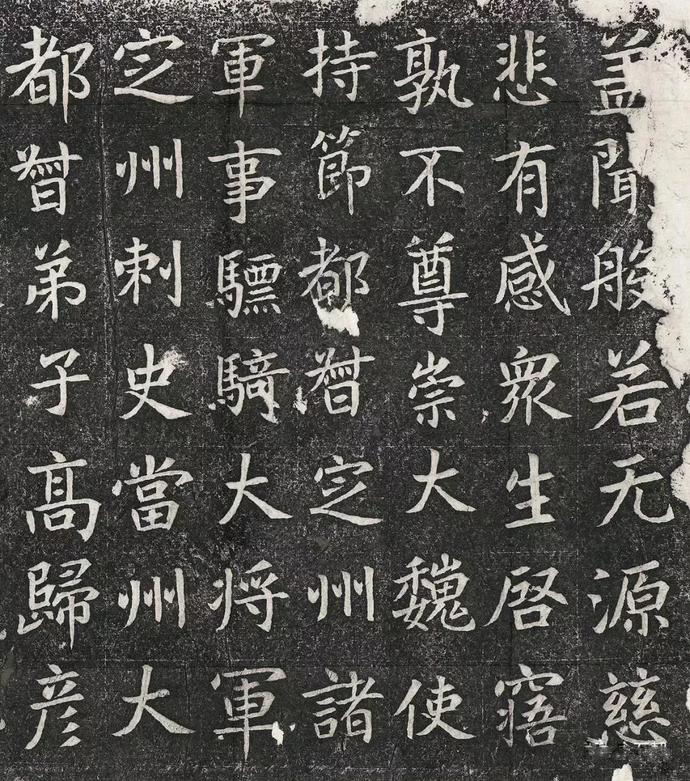 盖聞般若无源慈
悲有感衆生啓窹
孰不尊崇大魏使
持節都督定州諸
軍事驃騎大将軍
定州刺史當州大
都督弟子髙歸彦